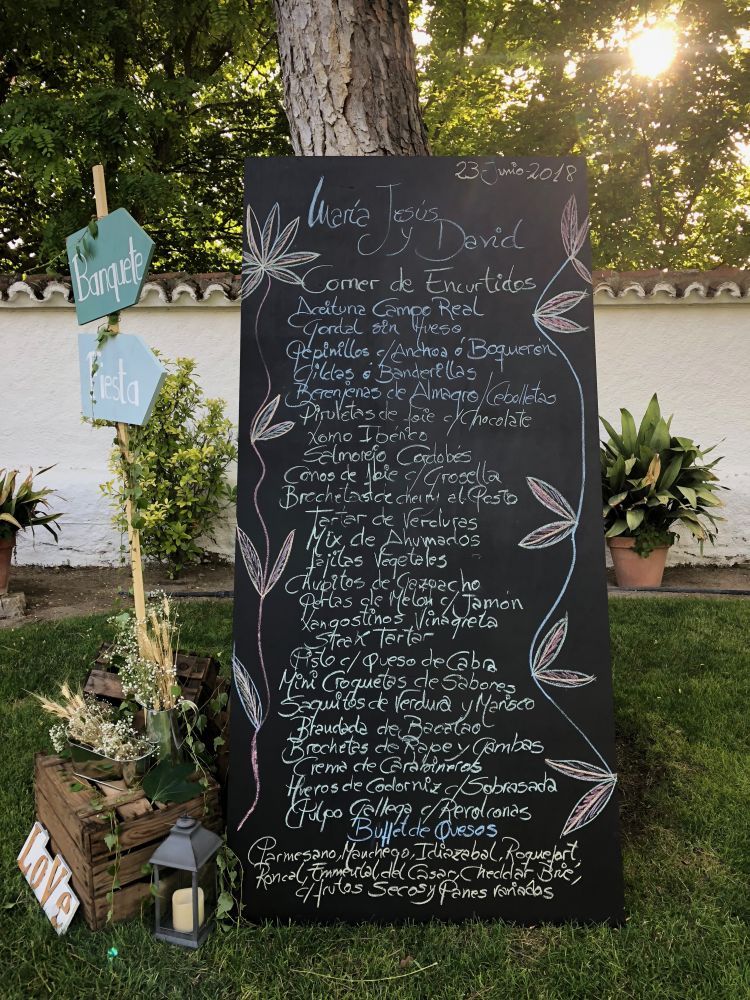 23-Junio-2018
María Jesús
y David
Corner de Encurtidos
Aceituna Campo Real
Gordal sin Hueso
Pepinillos c/Anchoa ó Boquerón
Gildas ó Banderillas
Berenjenas de Almagro/Cebolletas
Piruletas de foie c/Chocolate
Xamo Ibérico
Salmorejo Cordobés
Conos de foie c/Grosella
Brochetas de cherry al Pesto
Tartar de Verduras
Mix de Ahumados
Fajitas Vegetales
Chupitos de Gazpacho
Perlas de Melón c/Jamón
Xangostinos Vinagreta
Steak Tartar
Pisto c/Queso de Cabra
Mini Croquetas de Sabores
Saquitos de Verdura y Marisco
Brandada de Bacalao
Brochetas de Rape y Gambas
Crema de Carabineros
Huevos de Codorniz c/Sobrasada
Pulpo Gallega c/Revolconas
Buffet de Quesos
Parmesano, Manchego, Idiazabal, Roquefort,
Roncal, Emmental, del Casar, Cheddar, Brie,
c/frutos Secos y Panes variados
Banquete
Fiesta
LOVE